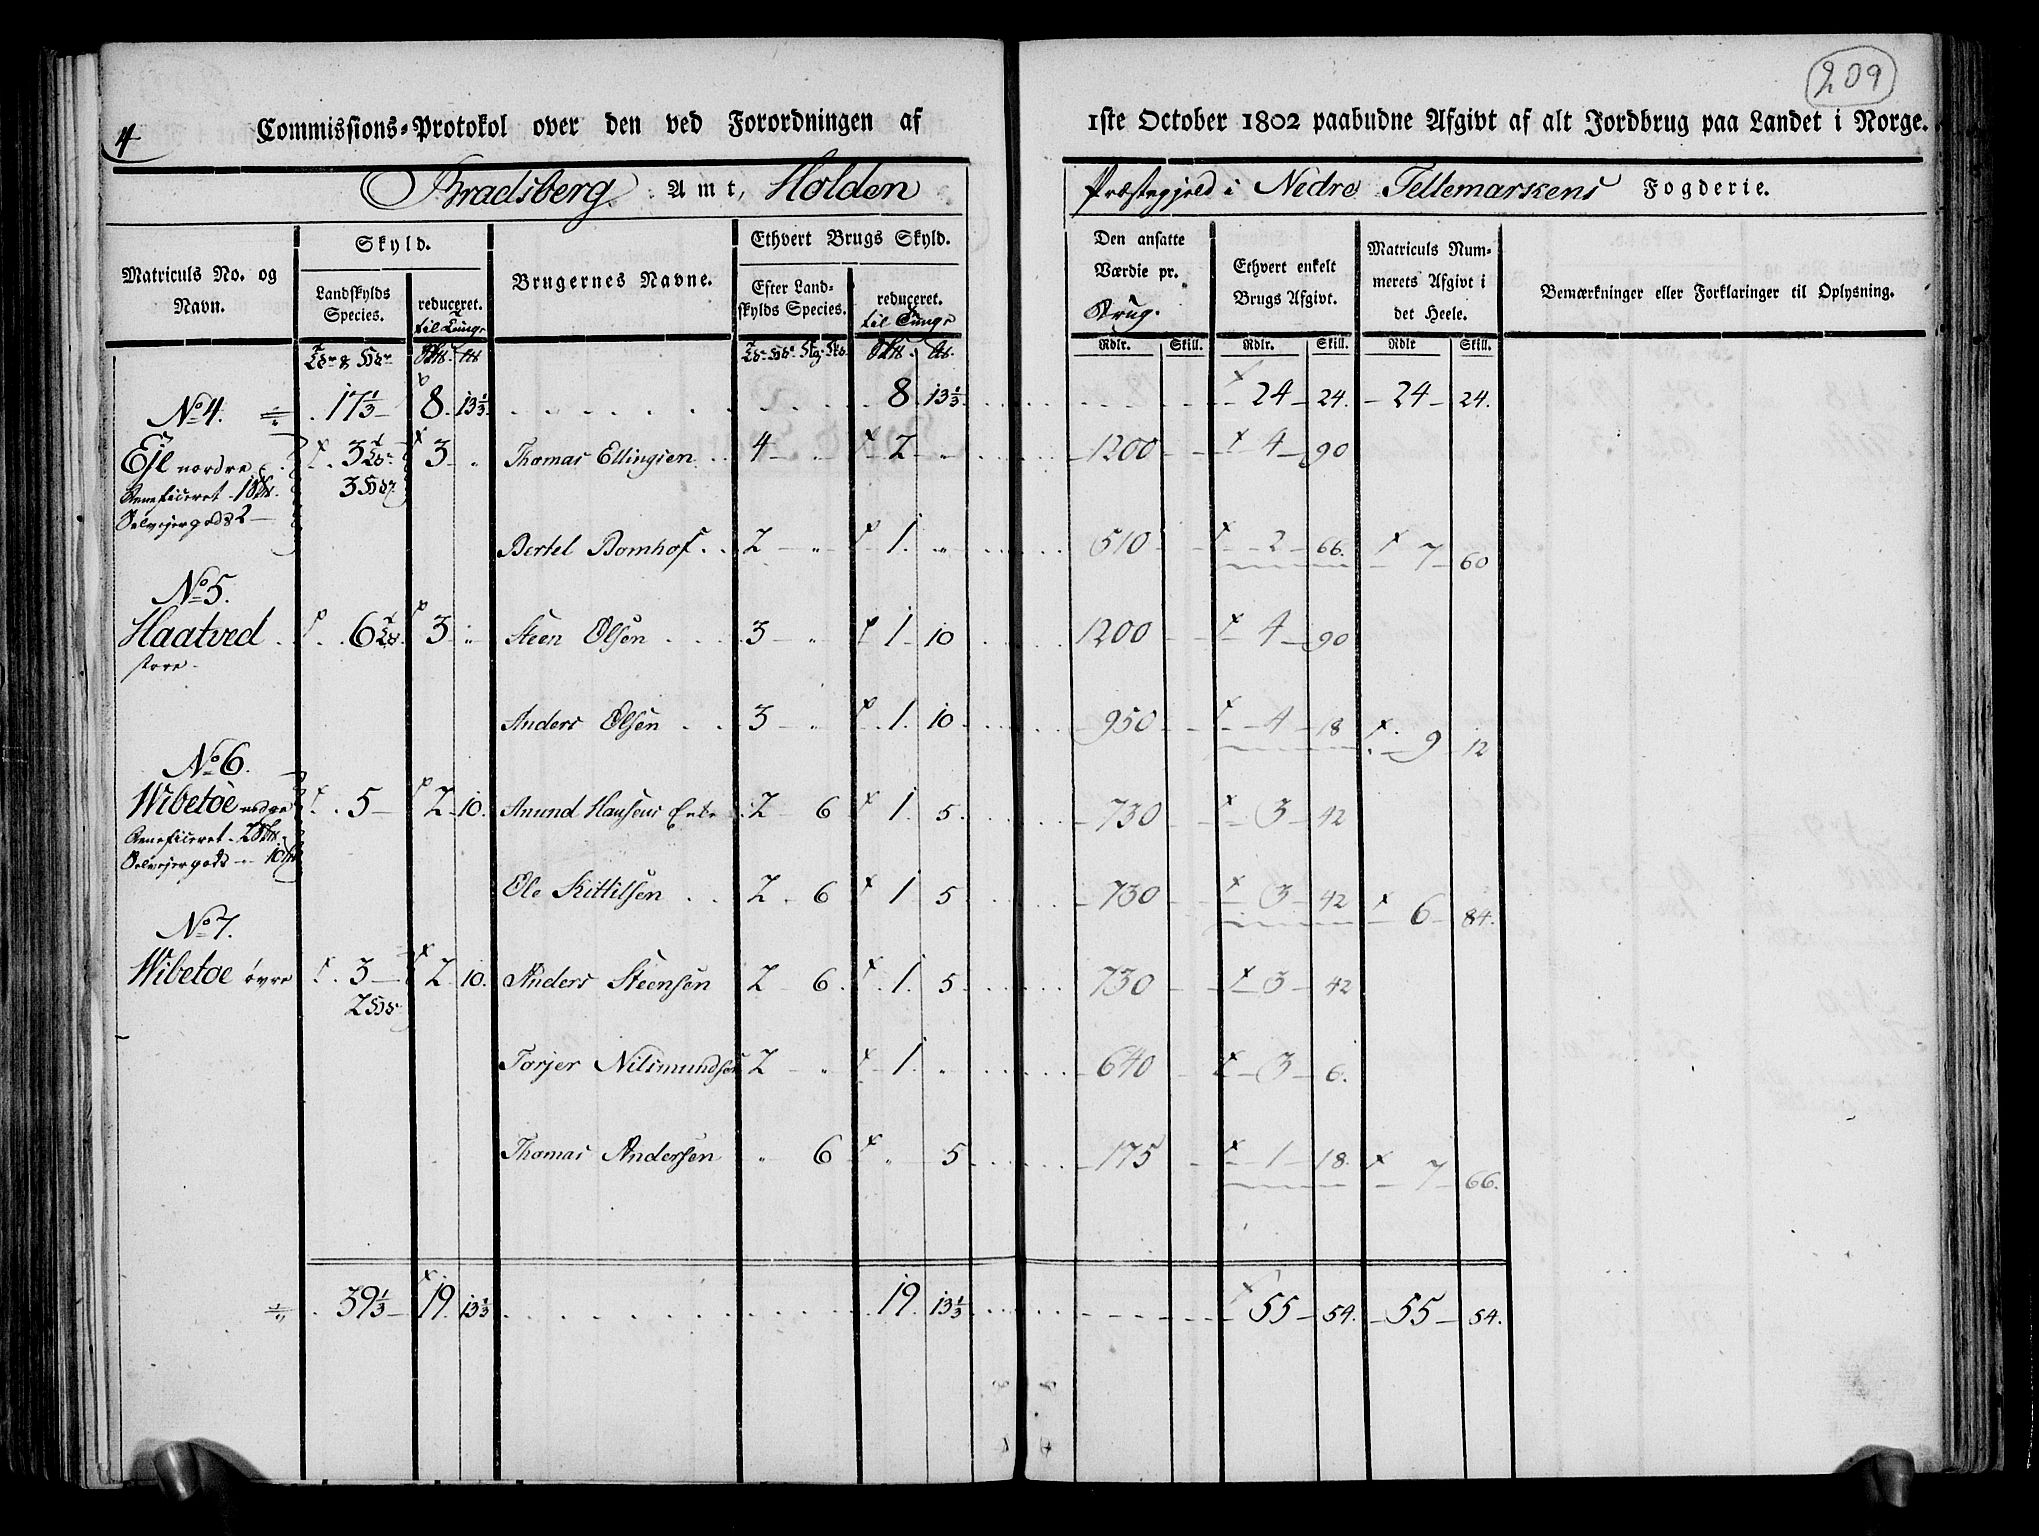 209
4 Commissions-Protokol over den ved Forordningen af 1ste October 1802 paabudne Afgivt af alt Jordbrug paa Landet i Norge.
Bradsberg Amt, Holden Præstegjeld i Nedre Tellemarkens Fogderie.
Matriculs No. og Navn.
Skyld.
Landskylds Species.
reduceret. til Tunge
Brugernes Navne.
Ethvert Brugs Skyld.
Efter Landskylds Species.
reduceret. til Tunge
Den ansatte Værdie pr. Brug.
Ethvert enkelt Brugs Afgivt.
Matriculs Nummerets Afgivt i det Heele.
Bemærkninger eller Forklaringer til Oplysning.
Rdlr. Skill. Rdlr. Skill. Rdlr Skill.
17 1/3 8 13 1/3 8 13 1/3 24 24. 24 24.
No 4.
Eje nordre 3 3 " Thomas Ellingsen 4 " 2 " 1200 4 90
Beneficeret 1
3
Selvejergods 2
Bertel Bomhof 2 " 1 " 510 2 66. 7 60
No 5.
Haatved 6 3 " Steen Olsen 3 " 1 10 1200 4 90
store
Anders Olsen 3 " 1 10 950 4 18 9 12
No 6.
Wibetoe nedre 5 2 10. Amund Hansens Enke 2 6 1 5. 730 3 42
Beneficeret 2
Selvejergods " 10
Ole Kittilsen 2 6 1 5 730 3 42 6 84.
No 7.
Wibetoe øvre 3 2 10. Anders Steensen 2 6. 1 5 730 3 42
2
Torjer Nilsmundsen 2 " 1 " 640 3 6.
Thomas Andersen " 6 " 5 175 1 18. 7 66.
39 1/3 19. 13 1/3 19. 13 1/3 55 54. 55 54.